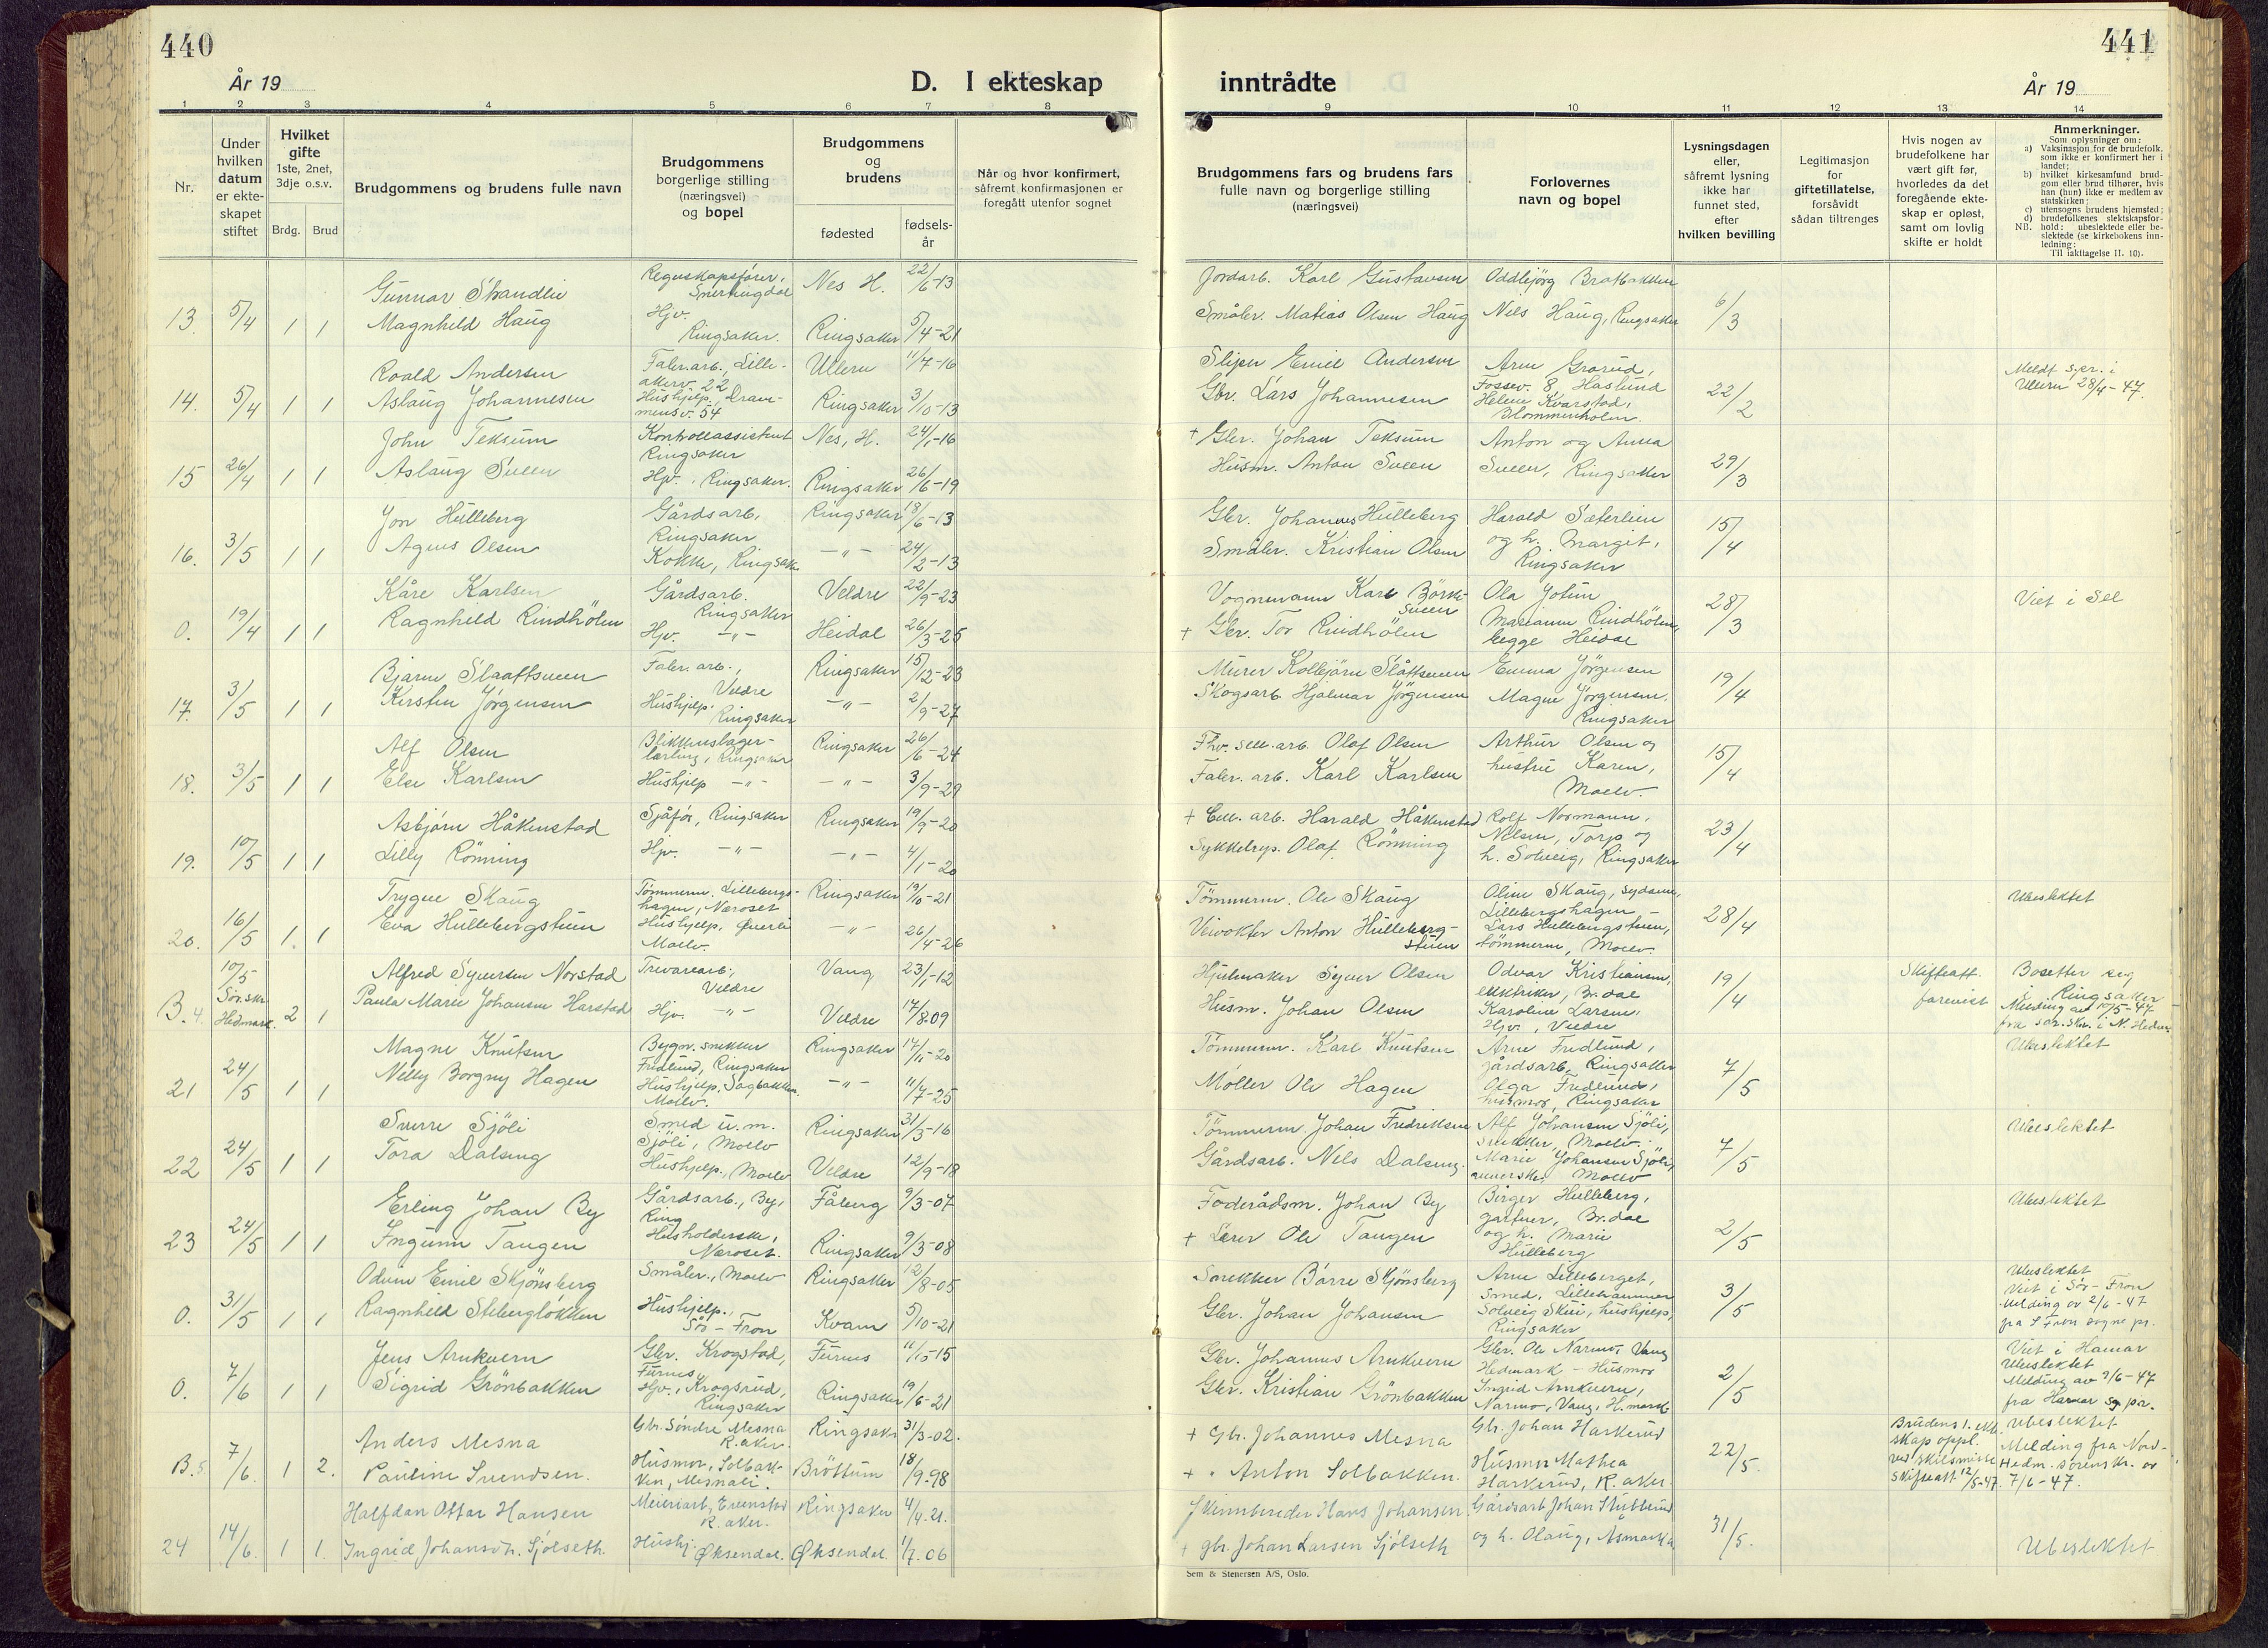 440
441
År 19
D. I ekteskap
inntrådte
År 19
1 2 3 4 5 6 7 8 9 10 11 12 13 14
Nr.
Under hvilken datum er ekteskapet stiftet
Hvilket gifte 1ste, 2net, 3dje o.s.v.
Brdg. Brud
Brudgommens og brudens fulle navn
Brudgommens borgerlige stilling (næringsvei) og bopel
Brudgommens og brudens
fødested
fødsels-år
Når og hvor konfirmert, såfremt konfirmasjonen er foregått utenfor sognet
Brudgommens fars og brudens fars fulle navn og borgerlige stilling (næringsvei)
Forlovernes navn og bopel
Lysningsdagen eller, såfremt lysning ikke har funnet sted, efter hvilken bevilling
Legitimasjon for giftetillatelse, forsåvidt sådan tiltrenges
Hvis nogen av brudefolkene har vært gift før, hvorledes da det foregående ekteskap er opløst, samt om lovlig skifte er holdt
Anmerkninger.
Som oplysninger om:
a) Vaksinasjon for de brudefolk, som ikke er konfirmert her i landet;
b) hvilket kirkesamfund brudgom eller brud tilhører, hvis han (hun) ikke er medlem av statskirken;
c) utensogns brudens hjemsted;
d) brudefolkenes slektskapsforhold: ubeslektede eller beslektede (se kirkebokens innledning;
NB. Til iakttagelse II. 10).
13. 5/4 1 1
Gunnar Strandlie
Regnskapsfører, Snertingdal
Nes H. 22/6-13
Jordarb. Karl Gustavsen
Oddbjörg Bratbakken
6/3
Magnhild Haug
Hjv. Ringsaker.
Ringsaker 5/4-21
Småbr. Matias Olsen Haug
Nils Haug, Ringsaker
14. 5/4 1 1
Roald Andersen
Fabr.arb., Lilleakerv. 22
Ullern 11/7-16
Sliper Emil Andersen
Arne Grorud, Fossev. 8, Haslund
22/2
Meldt s.pr. i Ullern 28/4-47.
Aslaug Johannesen
Hushjelp, Drammensv. 54
Ringsaker 3/10-13
Gbr. Lars Johannesen
Helene Kvarstad, Blommenholm.
15 26/4 1 1
John Teksum
Kontrollassistent Ringsaker
Nes, H. 24/1-16
+ Gbr. Johan Teksum
Anton og Anna Sveen, Ringsaker
29/3
Aslaug Sveen
Hjv., Ringsaker.
Ringsaker 26/6-19
Husm. Anton Sveen
16. 3/5 1 1
Jon Hulleberg
Gårdsarb, Ringsaker
Ringsaker 18/6-13
Gbr. Johannes Hulleberg
Harald Sæterlien og h. Marget, Ringsaker
15/4
Agnes Olsen
Kokke, Ringsak
-"- 24/2-13
Småbr. Kristian Olsen
0. 19/4 1 1
Kåre Karlsen
Gårdsarb. Ringsaker
Veldre 22/9-23
Vognmann Karl Börkesveen
Ola Jotun
28/3
Viet i Sel
Ragnhild Rindhölen
Hjv. -"-
Heidal 26/3-25
+ Gbr. Tor Rindhölen
Marianne Rindhölen, begge Heidal
17. 3/5 1 1
Bjarne Slaattsveen
Fabr. arb., Veldre
Ringsaker 15/12-23
Murer Kolbjörn Slåttsveen
Emma Jörgensen
19/4
Kirsten Jörgensen
Hushjelp. Ringsaker
-"- 2/9-27
Skogsarb. Hjalmar Jörgensen
Magne Jörgensen. Ringsaker
18. 3/5 1 1
Alf Olsen
Blikkenslagerlærling, Ringsaker
Ringsaker 26/6-24
Fhv. sell. arb. Olaf Olsen
Arthur Olsen og hustru Karen, Moelv.
15/4
Else Karlsen
Hushjelp -"-
-"- 3/9-29
Fabr. arb. Karl Karlsen
19. 10/5 1 1
Asbjørn Håkenstad
Sjåfør, Ringsaker
Ringsaker 19/9-20
+ Cell. arb. Harald Håkenstad
Rolf Normann, Nilsen, Torp og h. Solveig, Ringsaker
23/4
Lilly Rönning
Hjv. -"-
-"- 4/1-20
Sykkelrep. Olaf Rönning
20. 16/5 1. 1
Trygve Skaug
Tømmerm. Lillebergshagen, Næroset
Ringsaker 19/10-21
Tömmerm. Ole Skaug
Oline Skaug, sydame, Lillebergshagen
28/4
Ubeslektet
Eva Hullebergstuen
Hushjelp, Øverli Moelv.
-"- 26/4-26
Veivokter Anton Hullebergstuen
Lars Hullebergstuen, tömmerm, Moelv.
B. 4. 10/5 Sør.skr. Hedmark. 2 1
Alfred Syversen Norstad
Trevarearb., Veldre
Vang 23/1-12
Hjulmaker Syver Olsen
Odvar Kristiansen, elektriker, Br.dal
19/4
Skifteatt. forevist
Bosetter seg i Ringsaker Melding av 10/5-47 fra sør.skr. i N. Hedm.
Paula Marie Johansen Harstad
Hjv. -"-
Veldre 17/8.09
Husm. Johan Olsen
Karoline Larsen, Hjv., Veldre
21 24/5 1 1
Magne Knutsen
Bygn. snekker Fridlund, Ringsaker
Ringsaker 17/11-20
Tömmerm. Karl Knutsen
Arne Fridlund, gårdsarb, Ringsaker
7/5
Ubeslektet
Nelly Borgny Hagen
Hushjelp. Sagbakken. Moelv.
-"- 11/7-25
Møller Ole Hagen
Olga Fridlund, husmor, Ringsaker
22 24/5 1 1
Sverre Sjöli
Smed u.m. Sjöli, Moelv
Ringsaker 31/3-16
Tömmerm. Johan Fredriksen
Alf Johansen Sjöli, snekker, Moelv.
7/5
Ubeslektet
Tora Dalseng
Hushjelp., Moelv
Veldre 12/9-18
Gårdsarb. Nils Dalseng.
Marie Johansen Sjöli, Moelv
23 24/5 1 1
Erling Johan By
Gårdsarb., By, Ring
Fåberg 9/3-07
Foderådsm. Johan By
Birger Hulleberg, gartner, Br.dal
2/5
Ubeslektet
Ingunn Tangen
Husholderske, Næroset.
Ringsaker 9/3-08
+ Lærer Ole Tangen
og h. Marie Hulleberg
0. 31/5 1 1
Odvin Emil Skjönsberg
Småbr., Moelv
Ringsaker 12/8-05
Snekker Börre Skjönsberg
Arne Lilleberget, Smed, Lillehammer
3/5
Ubeslektet Viet i Sör-Fron Melding av 2/6-47 fra S Fron sogne pr.
Ragnhild Stebergløkken
Hushjelp., Sör-Fron
Kvam 5/10-21
Gbr. Johan Johansen
Solveig Skui, hushjelp, Ringsaker
0. 7/6 1 1
Jens Arnkvern
Gbr. Krogstad, Furnes
Furnes 11/10-15
Gbr. Johannes Arnkvern
Gbr. Ole Narmo, Vang Hedmark - Husmor
2/5
Viet i Hamar Ubeslektet Melding av 7/6-47 fra Hamar sg pr.
Sigrid Grönbakken
Hjv., Krogsrud, Ringsaker
Ringsaker 19/6-21
Gbr. Kristian Grönbakken
Ingrid Arnkvern, Narmo, Vang, H.mark
B. 5. 7/6. 1 2.
Anders Mesna
Gbr. Søndre Mesna R.aker.
Ringsak 31/3-02.
+ Gbr. Johannes Mesna
Gbr. Johan Harkerud
22/5.
Brudens 1. ekteskap oppl. ved skilsmisse Skifteatt 12/5-47.
Ubeslektet Melding fra Nord-Hedm. sorenskr. av 7/6-47.
Pauline Svendsen.
Husmor, Solbakken, Mesnali.
Brøttum 18/9.98
+ " Anton Solbakken.
Husmor Mathea Harkerud, R.aker.
24 14/6. 1 1.
Halfdan Ottar Hansen
Meieriarb, Evenstad R.aker.
Ringsaker 4/4.21.
Skinnbereder Hans Johansen.
Gårdsarb Johan Stubberud og h. Olaug, Åsmarka
31/5.
Ubeslektet
Ingrid Johansdr. Sjølseth.
Hushj. Øksendal.
Øksendal. 1/7.06
+ gbr. Johan Larsen Sjølseth
Sem & Stenersen A/S, Oslo.